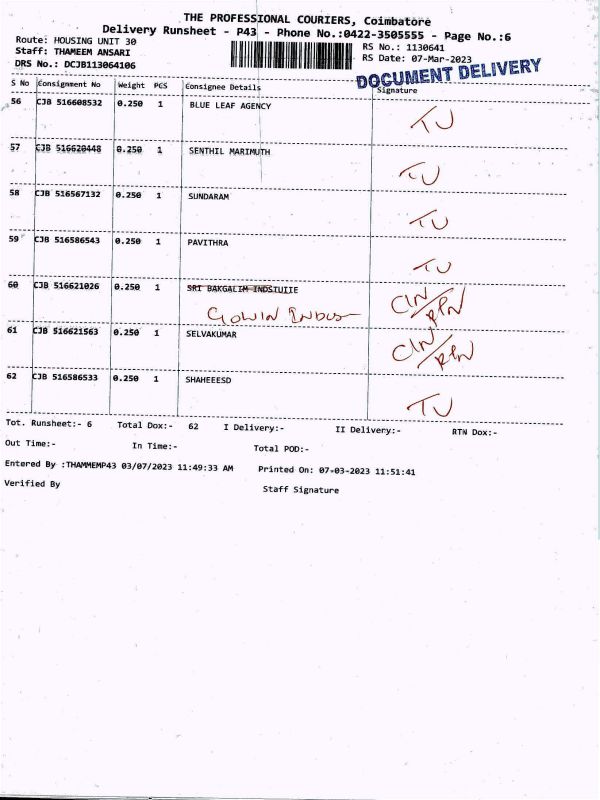 THE PROFESSIONAL COURIERS, Coimbatore
Delivery Runsheet - P43 - Phone No.:0422-3505555 - Page No.:6
Route: HOUSING UNIT 30 RS No.: 1130641
Staff: THAMEEM ANSARI RS Date: 07-Mar-2023
DRS No.: DCJB113064106 DOCUMENT DELIVERY
S No Consignment No Weight PCS Consignee Details Signature
56 CJB 516608532 0.250 1 BLUE LEAF AGENCY TU
57 CJB 516620448 0.250 1 SENTHIL MARIMUTH TU
58 CJB 516567132 0.250 1 SUNDARAM TU
59 CJB 516586543 0.250 1 PAVITHRA TU
60 CJB 516621026 0.250 1 SRI BAKGALIM INDSTUITE CIN/RPN
GOWIN INDUS
61 CJB 516621563 0.250 1 SELVAKUMAR CIN/RPN
62 CJB 516586533 0.250 1 SHAHEEESD TU
Tot. Runsheet:- 6 Total Dox:- 62 I Delivery:- II Delivery:- RTN Dox:-
Out Time:- In Time:- Total POD:-
Entered By :THAMMEMP43 03/07/2023 11:49:33 AM Printed On: 07-03-2023 11:51:41
Verified By Staff Signature